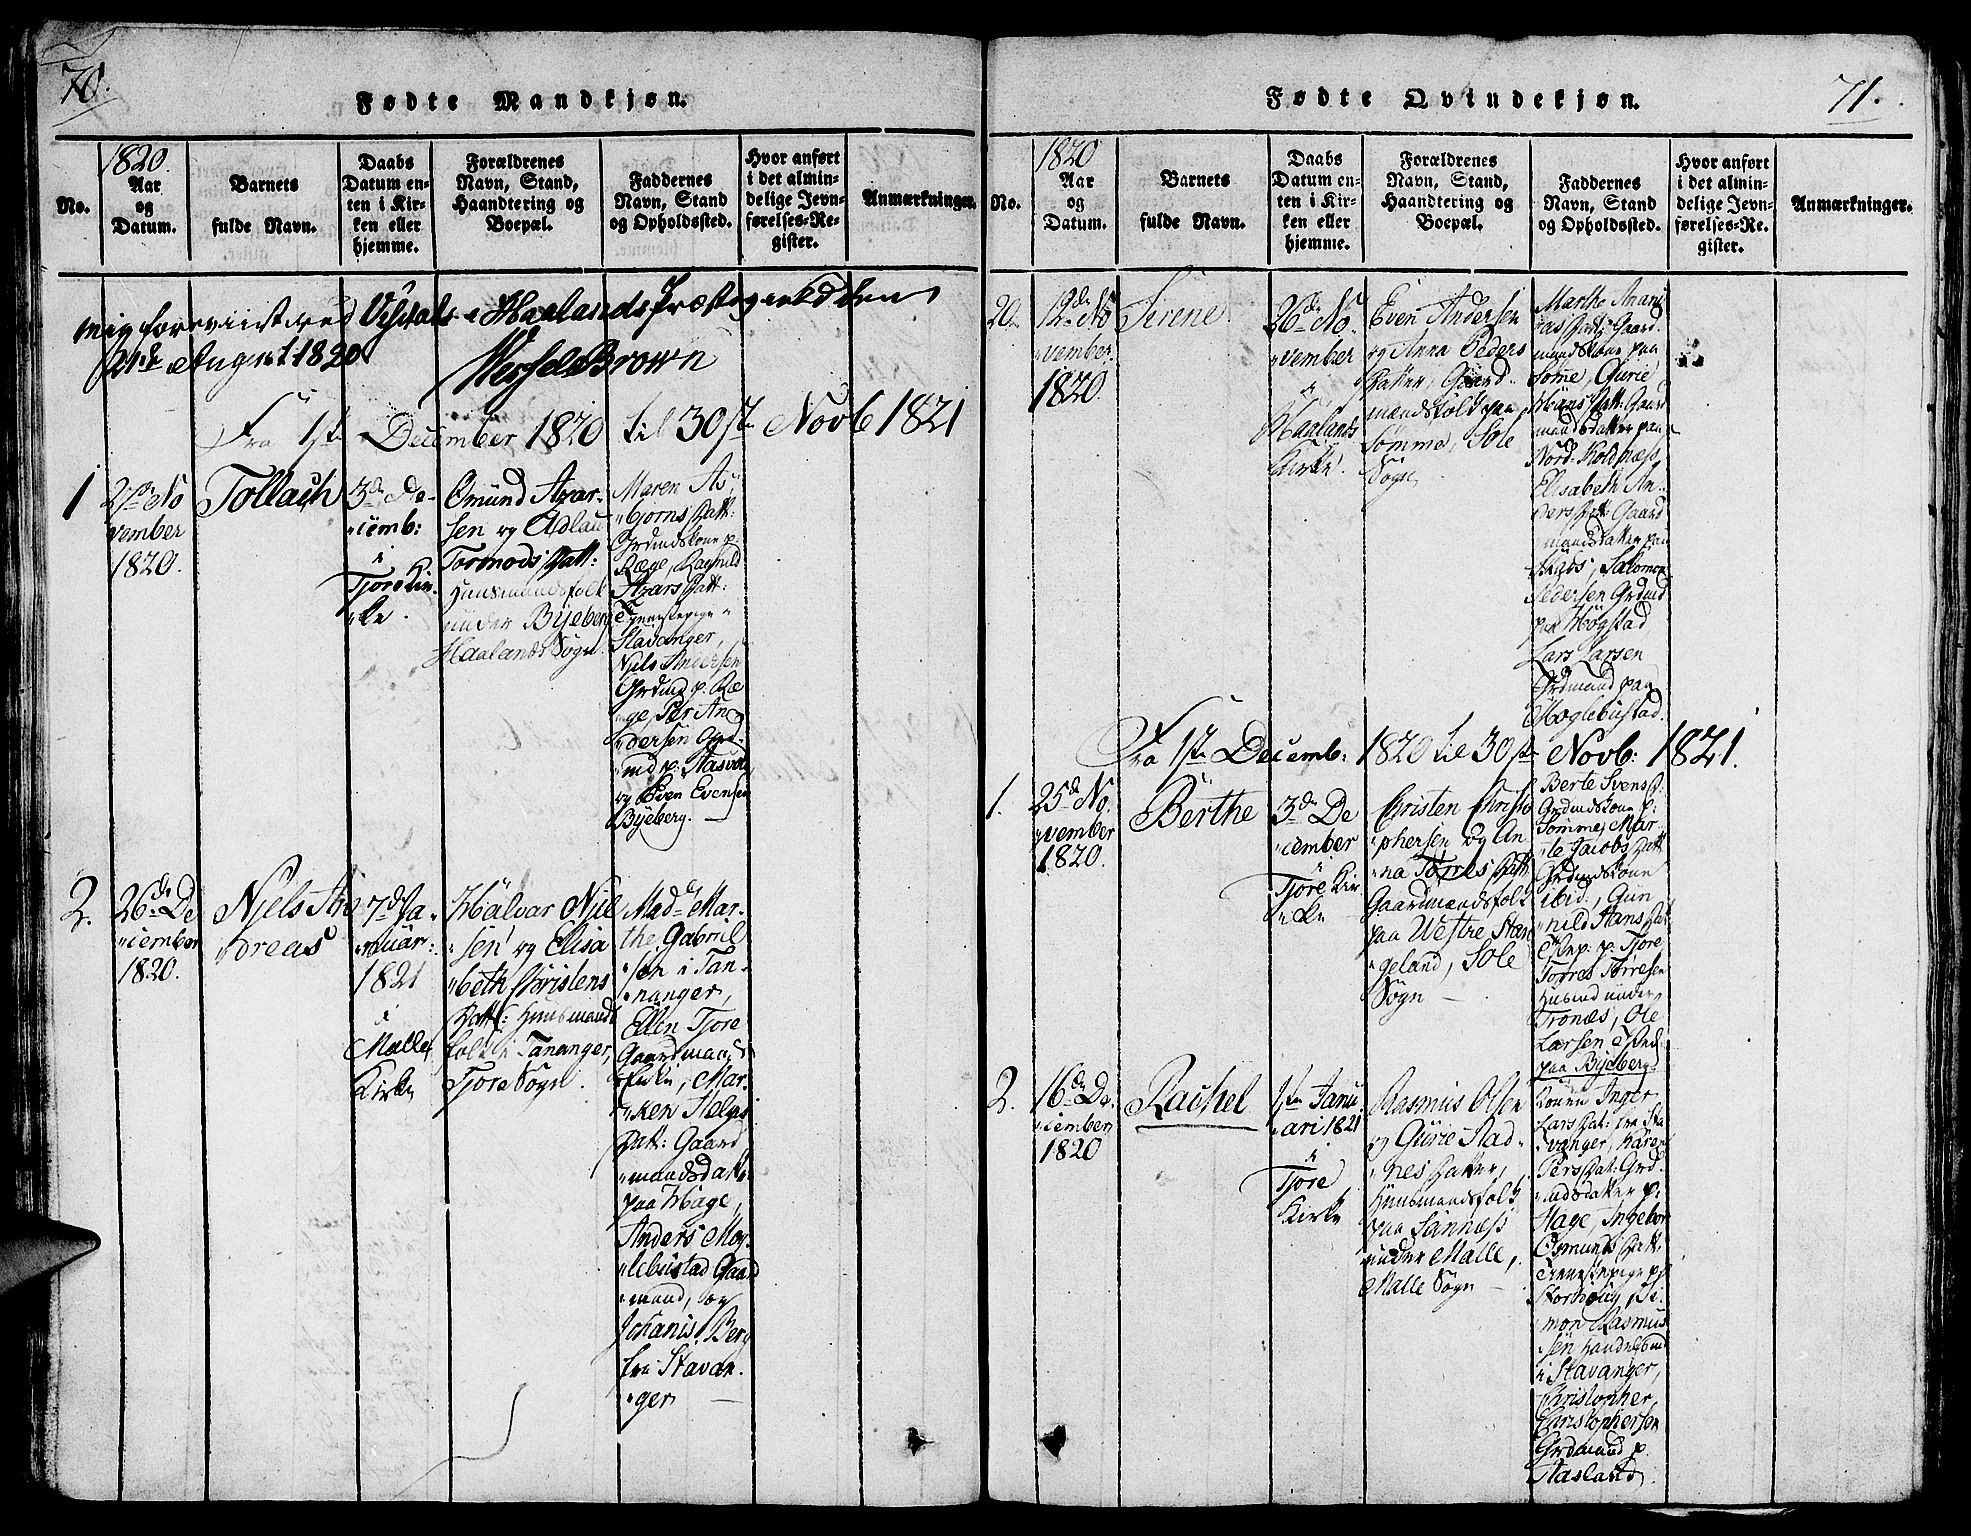 70.
Fødte Mandkjøn.
No.
1820.
Aar
og
Datum.
Barnets
fulde Navn.
Daabs
Datum en-
ten i Kir-
ken eller
hjemme.
Forældrenes
Navn, Stand,
Haandtering og
Boepæl.
Faddernes
Navn, Stand
og Opholdssted.
Hvor anført
i det almin-
delige Jevn-
førelses-Re-
gister.
Anmærkninger.
mig foreviist ved Visitats i Haalands Præstegield den
21de August 1820
Brown
Fra 1ste December 1820 til 30ste Novb 1821
1
27de No
vember
1820.
Tollach
3de De-
cemb:
i
Tjore Kir-
ke.
Omund Azar-
sen og Adlau
Tormods Datt:
Huusmandsfolk
under Bijeberg
Haalands Sogn.
Maren As-
bjorns Datt:
Grdmdskone p.
Ræge, Ragnild
Azars Datt:
Tjenestepige i
Stavanger,
Niels Andersen
Grdmd p. Ræ
ge, Per An
dersen Grd
md p:
og Even Evensen
Bijeberg.
2.
26de De
cember
1820.
Njels An
dreas
7de Ja-
nuar:
1821
i
Malle
Kirke
Halvar Njel
sen og Elisa
beth Christens
Datt: Huusmands
folk i Tananger,
Tjore Sogn.
Madme Mar-
the Gabriel
sen i Tan-
nanger,
Ellen Tjore
Gaardmands
Enke, Mar-
ken Helges
Datt: Gaard
mandsdatter
paa Hage,
Anders Mog-
lebustad Gaard
mand, og
Johanis Berg
fra Stavan-
ger
71.
Fødte Qvindekjøn.
No.
1820
Aar
og
Datum.
Barnets
fulde Navn.
Daabs
Datum en-
ten i Kir-
ken eller
hjemme.
Forældrenes
Navn, Stand,
Haandtering og
Boepæl.
Faddernes
Navn, Stand
og Opholdssted.
Hvor anført
i det almin-
delige Jevn-
førelses-Re-
gister.
Anmærkninger.
20.
12de No
vember
1820.
Serene
26de No-
vember
i
Haalands
Kirke
Even Andersen
og Anna Peders
Datter, Gaard
mandsfolk paa
Sømme, Sole
Sogn
Marthe Anani
as Datt: Gaard
mandskone paa
Somme, Gurie
Hans Datt: Gaard
mandsdatter paa
Nord-Koldnæss
Elisabeth An
ders Datt: Gaard
mandsdatter paa
Salomon
Pedersen Grdmd
paa Høgstad
Lars Larsen
Grdmand paa
Moglebustad.
Fra 1ste Decemb: 1820 til 30ste Novb: 1821.
1.
25de No
vember
1820.
Berthe
3de De
cember
i
Tjore Kir
ke
Christen Christo
phersen og An
na Torres Datt
Gaardmandsfolk
paa Westre Stan
geland, Sole
Sogn
Berte Svens D.
Grdmdskone p:
Somme, Mar-
te Jacobs Datt
Grdmdskone
ibid., Gun
nild Hans Dat
p. Tjore
Torres Torresen
Husmd under
Tronæs, Ole
Larsen
paa Bijeberg
2.
16de De
cember
1820
Rachel
1ste Janu
ari 1821
i
Tjore
Kirke
Rasmus Olsen
og Gurie Aad-
nes Datter,
Huusmandsfolk
paa Sannæss
under Malle,
Malle Sogn
Konen Inger
Lars Dat: fra Sta
vanger, Karen
Pers Dat: Grd
mdsdatter p:
Hage, Ingebor
Osmunds Datt:
Tjenestepige p:
Storhoug, Si-
mon Rasmus
sen Handelsmd
i Stavanger,
Christopher
Christophersen
Grdmand p.
Aasland.